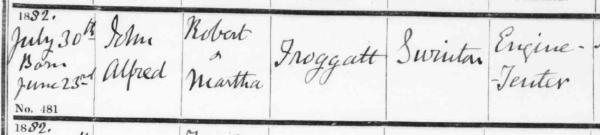 1882.
July 30th
Born
June 23rd
No. 481
John
Alfred
Robert
&
Martha
Froggatt
Swinton
Engine-
-Tenter
1882.